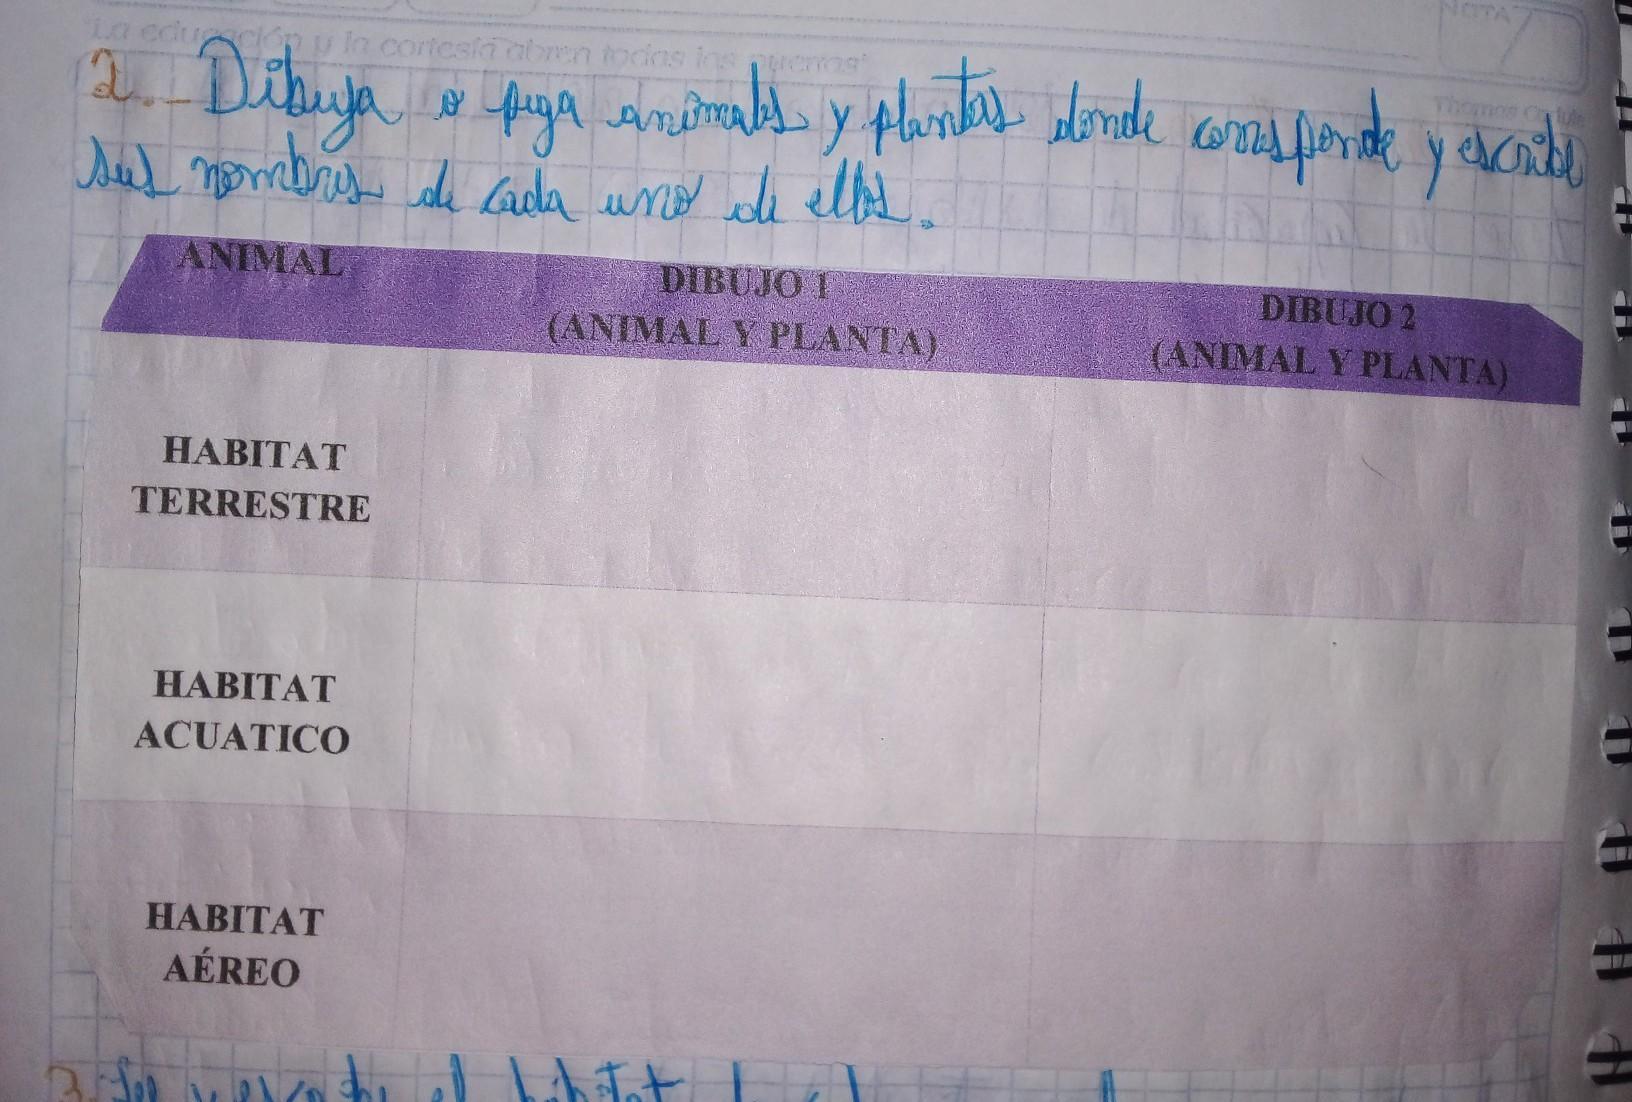 NOTA
"La educación y la cortesía abren todas las puertas"
Thomas
2.- Dibuja o pega animales y plantas donde corresponde y escribe
sus nombres de cada uno de ellos.
ANIMAL
DIBUJO 1
(ANIMAL Y PLANTA)
DIBUJO 2
(ANIMAL Y PLANTA)
HABITAT
TERRESTRE
HABITAT
ACUATICO
HABITAT
AÉREO
3. el habitat